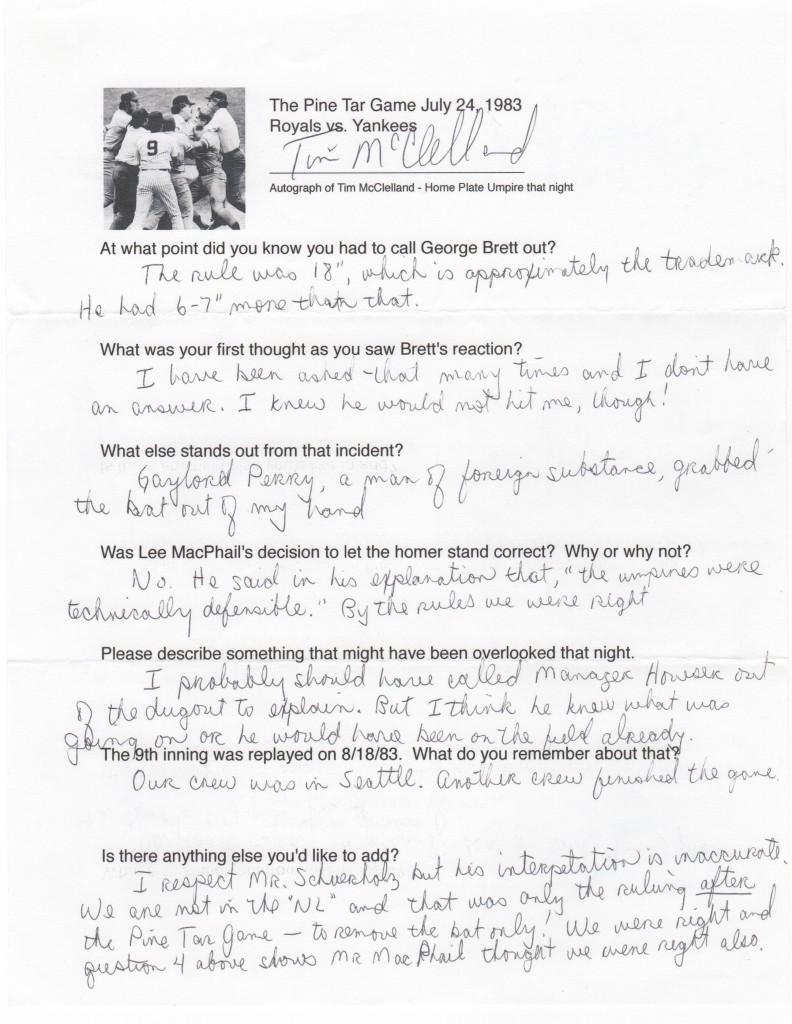 The Pine Tar Game July 24, 1983
Royals vs. Yankees
Tim McClelland
Autograph of Tim McClelland - Home Plate Umpire that night
9
At what point did you know you had to call George Brett out?
The rule was 18", which is approximately the trademark.
He had 6-7" more than that.
What was your first thought as you saw Brett's reaction?
I have been asked that many times and I don't have
an answer. I knew he would not hit me, though!
What else stands out from that incident?
Gaylord Perry, a man of foreign substance, grabbed
the bat out of my hand
Was Lee MacPhail's decision to let the homer stand correct? Why or why not?
No. He said in his explanation that, "the umpires were
technically defensible." By the rules we were right
Please describe something that might have been overlooked that night.
I probably should have called Manager Howser out
of the dugout to explain. But I think he knew what was
going on or he would have been on the field already.
The 9th inning was replayed on 8/18/83. What do you remember about that?
Our crew was in Seattle. Another crew finished the game.
Is there anything else you'd like to add?
I respect Mr. Schuerholz but his interpetation is inaccurate.
We are not in the "NL" and that was only the ruling after
the Pine Tar Game — to remove the bat only! We were right and
question 4 above shows Mr MacPhail thought we were right also.